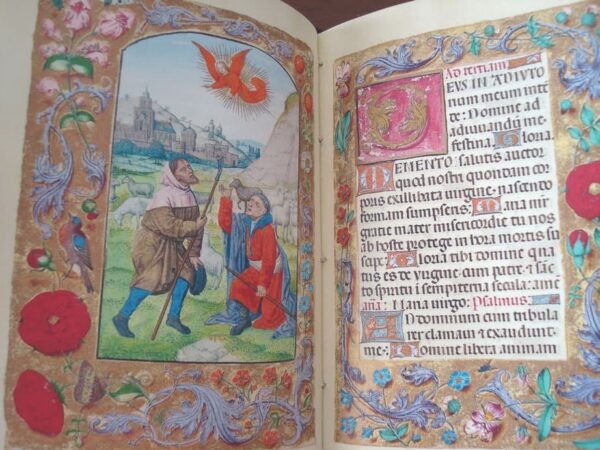 Ad tertiam
DEUS IN ADIVTO
rium meum inte
nde: Domine ad
adiuvandū me
festina: Gloria
MEMENTO: salutis auctor
quod nostri quondam cor
poris ex illibata virgine: nascendo
formam sumpseris: Maria mr̄
gratie mater misericordie tu nos
ab hoste protege in hora mortis su
scipe: Gloria tibi domine qua
tus es de virgine cum patre & sācto
spiritu in sempiterna secula:
amen̄: Maria virgo: Psalmus
AD dominum cum tribula
rer clamavi & exaudivit
me: Domine libera animam